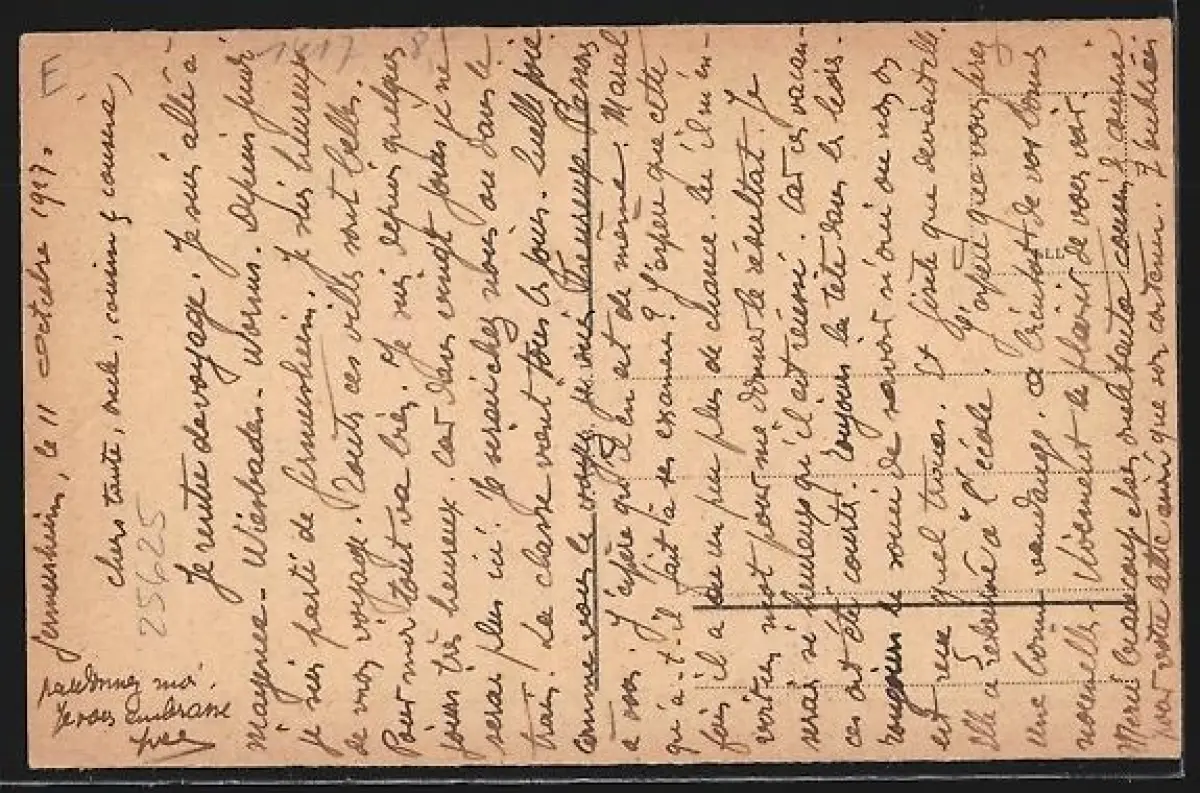 Germersheim, le 11 octobre 1917.
Chers tante, oncle, cousin & cousine,
Je rentre de voyage. Je suis allé à
Mayence - Wiesbaden - Worms. Depuis
je suis parti de Germersheim. Je suis heureux
de mon voyage. Toutes ces villes sont belles.
Pour moi tout va bien. Je suis depuis quelques
jours très heureux. Car dans vingt jours je ne
serai plus ici. Je serai chez nous ou dans le
train. La classe vient tous les jours. Quelle joie.
comme vous le voyez je suis heureux. Pensons
à vous. J'espère qu'il en est de même. Marcel
qu'a-t-il fait à ses examens? J'espère que cette
fois il a eu un peu plus de chance. Qu'il m'en-
voit un mot pour me donner le résultat. Je
serai si heureux qu'il ait réussi. Car ces vacan-
ces ont été courte. Toujours la tête dans les livres.
Toujours le souci de savoir si oui ou non on
est reçu. Quel tracas. Et
Elle a retourné à l'école. J'espère que vous ferez
une bonne vendange. A bientôt de vos bonnes
nouvelles. Vivement le plaisir de vous voir.
Merci beaucoup cher oncle, tante, cousin & cousine
pour votre lettre ainsi que son contenu.
pardonnez moi.
Je vous embrasse
25625
1417
8
E